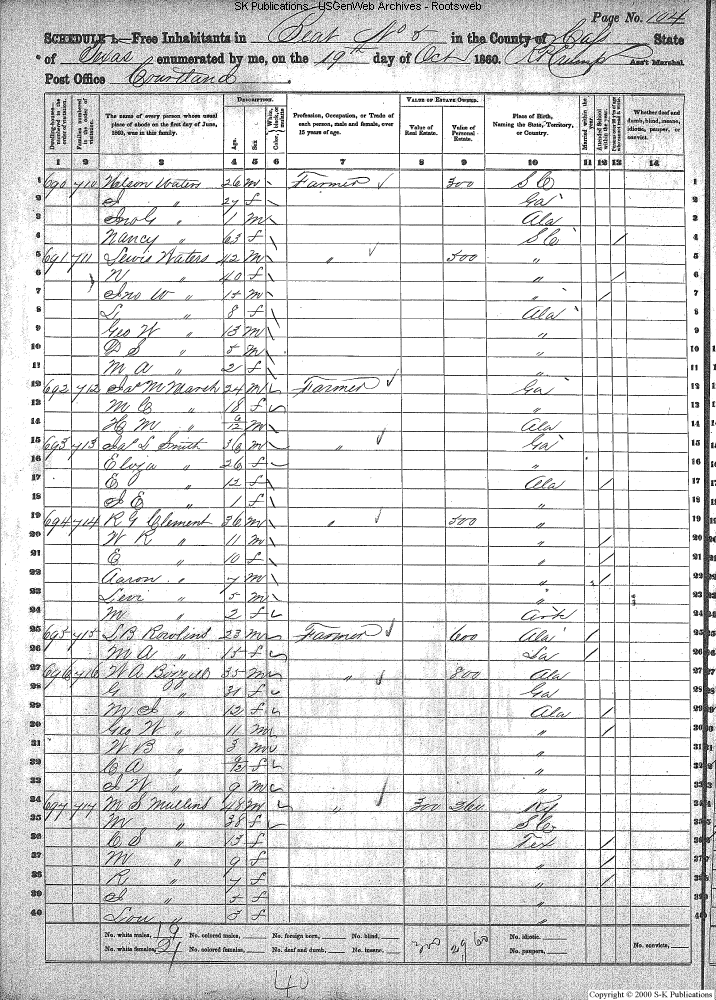 SK Publications - USGenWeb Archives - Rootsweb
Page No. 104
SCHEDULE 1.—Free Inhabitants in Beat No 5 in the County of Cass State
of Texas enumerated by me, on the 19th day of Oct 1860. Ass't Marshal.
Post Office Courtland
Dwelling-houses— numbered in the order of visitation.
Families numbered in the order of visitation.
The name of every person whose usual place of abode on the first day of June, 1860, was in this family.
DESCRIPTION.
Age. Sex.
Profession, Occupation, or Trade of each person, male and female, over 15 years of age.
VALUE OF ESTATE OWNED.
Value of Real Estate. Value of Personal Estate.
Place of Birth, Naming the State, Territory, or Country.
Married within the year. Attended School within the year.
Whether deaf and dumb, blind, insane, idiotic, pauper, or convict.
1 2 3 4 5 6 7 8 9 10 11 12 13 14
1 690 710 Waters 26 m Farmer 300 S C 1
2 " 27 f Ga 2
3 Jno G " 1 m Ala 3
4 Nancy " 63 f S C 4
5 691 711 Lewis Waters 42 m " 500 " 5
6 N " 40 f " 6
7 Jno W " 15 m " 7
8 S " 8 f Ala 8
9 Geo W " 13 m " 9
10 " 5 m " 10
11 M A " 2 f " 11
12 692 712 Jas M March 24 m Farmer Ga 12
13 M C " 18 f " 13
14 H M " 9/12 m Ala 14
15 693 713 Jas L Smith 36 m " Ga 15
16 Eliza " 26 f " 16
17 E " 12 f Ala 17
18 E " 1 f " 18
19 694 714 R G Clement 36 m " 500 " 19
20 W R " 11 m " 20
21 E " 10 f " 21
22 Aaron " 7 m " 22
23 Levi " 5 m " 23
24 M " 2 f Ark 24
25 695 715 S B Rowlins 23 m Farmer 600 Ala 25
26 M A " 15 f La 26
27 696 716 W A 35 m " 800 Ala 27
28 G " 31 f Ga 28
29 M " 12 f Ala 29
30 Geo W " 11 m " 30
31 W B " 3 m " 31
32 C A " 9/12 f " 32
33 W " 9 m " 33
34 697 717 M S Mullins 48 m " 300 360 Ky 34
35 M " 38 f S C 35
36 C S " 13 f Tex 36
37 M " 9 f " 37
38 R " 7 f " 38
39 " 5 f " 39
40 Lou " 3 f " 40
No. white males, 19 No. colored males, No. foreign born, No. blind, No. idiotic, No. convicts,
No. white females, 21 No. colored females, No. deaf and dumb, No. insane, 300 No. paupers,
40
Copyright © 2000 S-K Publications